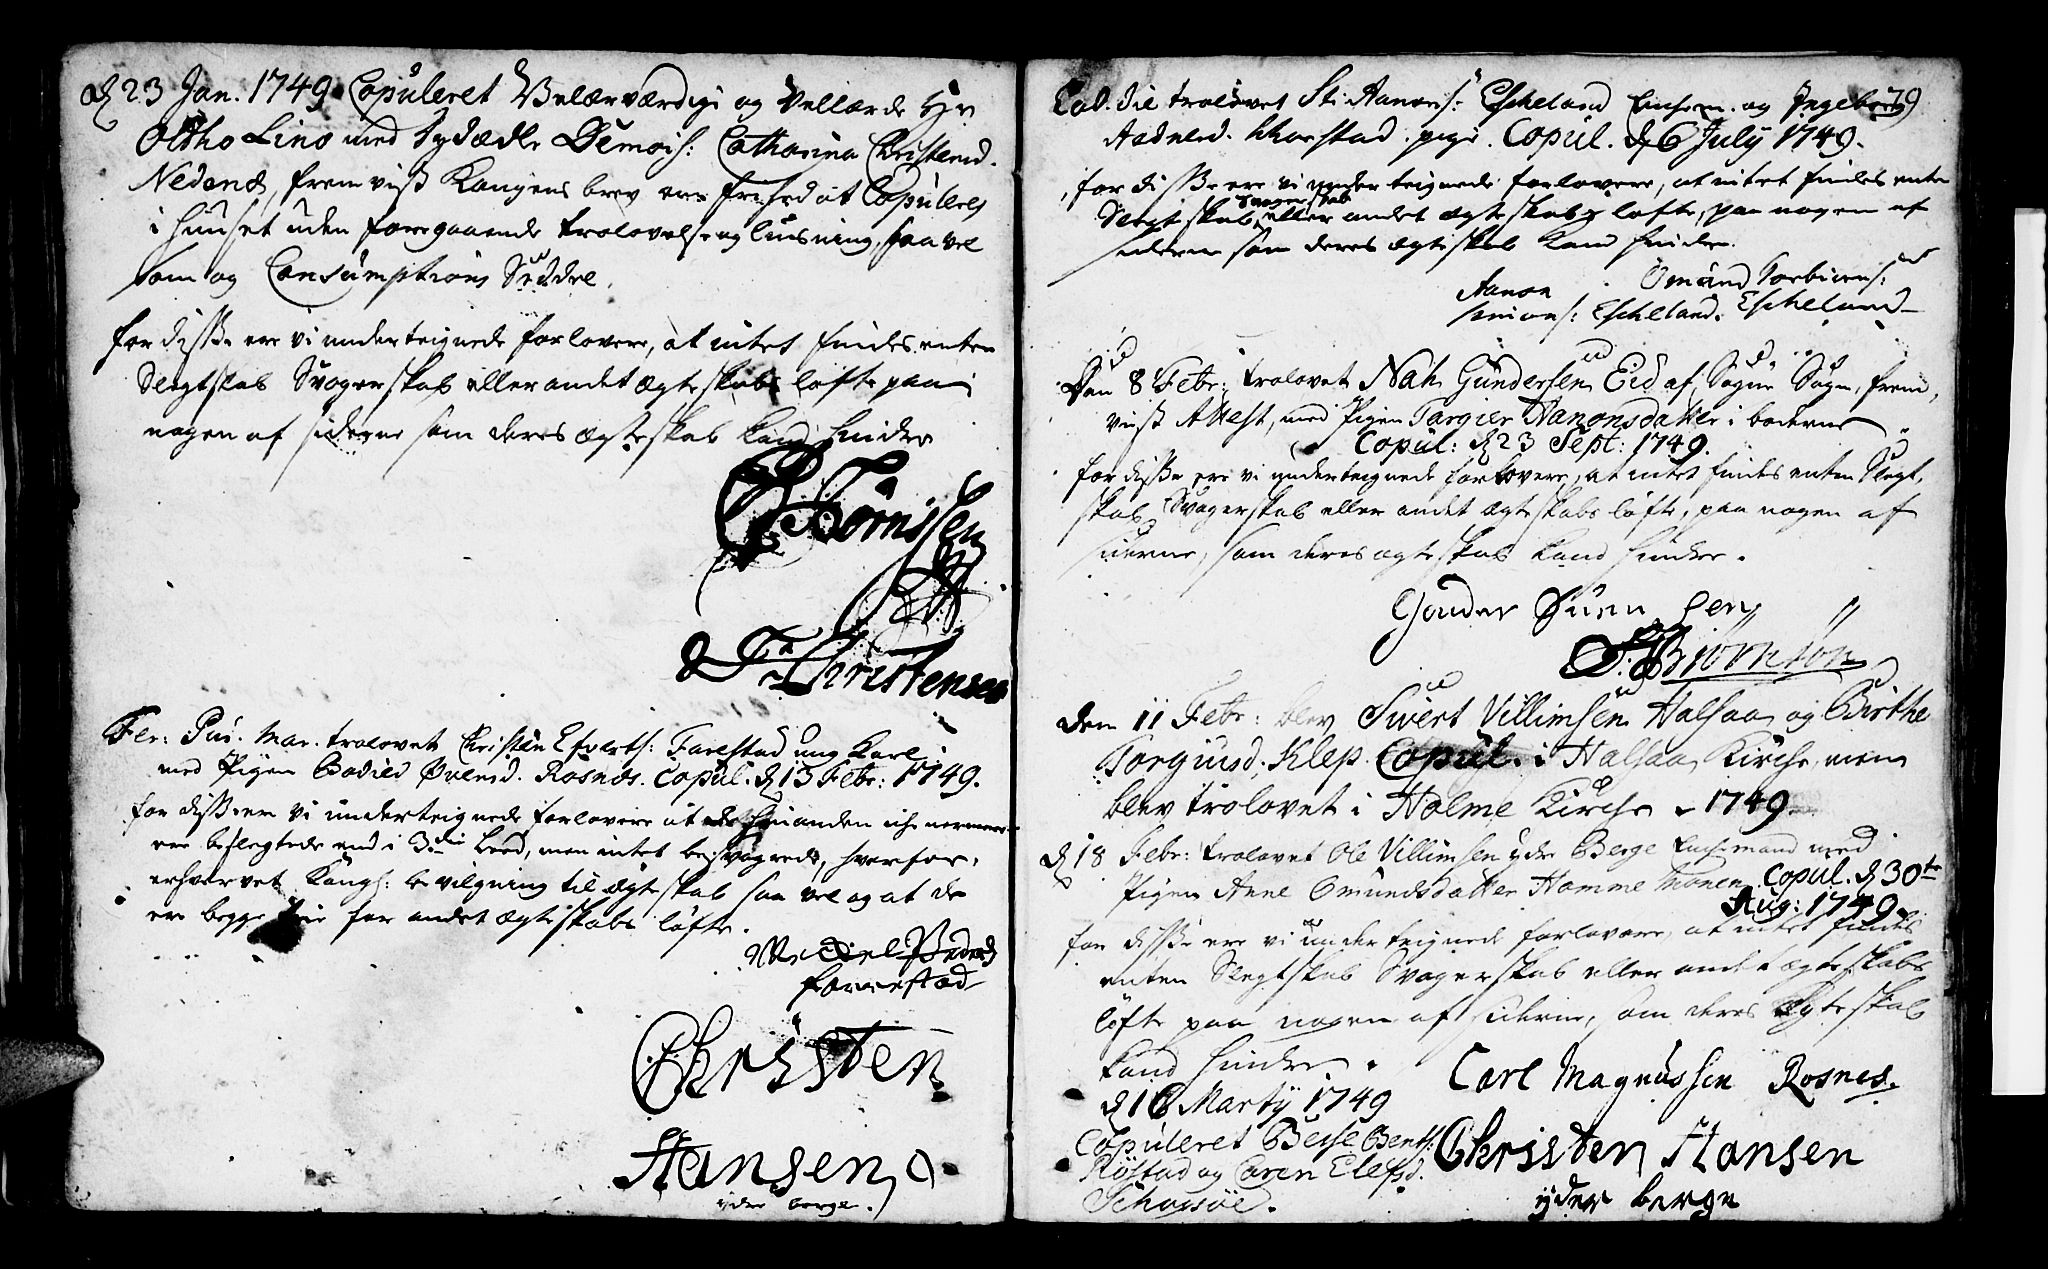 d 23 Jan. 1749 Copuleret Velærværdige og Vellærde Hr
Ottho Lino med dydædle Demois: Catharina Christensd.
Nedenæs, frem viist Kongens brev om frihed at Copuleres
i huuset uden foregaaende trolovelse og liusning, saa vel
som og Consumptions Seddel.
for disse ere vi underteignede forlovere, at intet findes enten
Slegtskab Svogerskab eller andet ægteskabs løfte paa
nogen af siderne som deres ægteskab kand hindre
Tørrissen
Christensen
Fer: Pur. Mar. trolovet Christen Efverts: Farestad ung karl
med Pigen Bodied Øvensd. Rosnæs. Copul. d 13 Febr: 1749.
for disse ere vi underteignede forlovere at de hinanden iche nermere
ere beslegtede end i 3die leed, men intet besvogrede, hvorfor
erhvervet Kongl: bevilgning til ægteskab saa vel og at de
ere begge frie for andet ægteskabs løfte.
Farrestad
Christen
Hansen
yder berge.
79
trolovet St: Aanons: Escheland Enchem. og Ingeborg
Copul. d 6 July 1749.
for disse ere vi underteignede forlovere, at intet findes enten
Svogerskab
Slegtskab, eller andet ægteskabs løfte, paa nogen af
siderne som deres ægteskab kand hindre.
Aanon Omund Torbiørns:
Escheland. Escheland
Den 8 Febr: trolovet Nah Gundersen Eid af Søgne Sogn, frem-
viist Attest, med Pigen Targier Aanonsdatter i boderne
Copul: d 23 Sept: 1749.
for disse ere vi underteignede forlovere, at intet findes enten Slegt-
skab Svogerskab eller andet ægteskabs løfte, paa nogen af
siderne, som deres ægteskab kand hindre.
Gonder Suen sen
Biörnson
Den 11 Febr: blev Sivert Villimsen Halsaa og Birthe
Torgiusd. Klep. Copul. i Halsaa Kirche, men
blev trolovet i Holme Kirche 1749
d 18 Febr: trolovet Ole Villimsen yder Berge Enchemand med
Pigen Anne Omundsdatter Hamme Monen. Copul. d 30te
Aug: 1749
for disse ere vi underteignede forlovere, at intet findes
enten Slegtskab Svogerskab eller andet ægteskabs
løfte paa nogen af siderne, som deres ægteskab
kand hindre.
Carl Magnussen Rosnes.
d 16 Marty 1749
Copuleret Berse Bents:
Røstad og Caren Elefsd.
Christen Hansen
yder berge